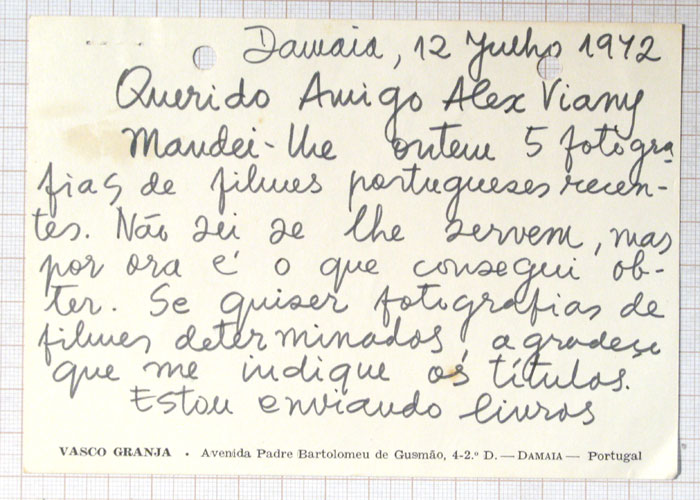 Damaia, 12 Julho 1972
Querido Amigo Alex Viany
Mandei-lhe ontem 5 fotogra-
fias de filmes portugueses recen-
tes. Não sei se lhe servem, mas
por ora é o que consegui ob-
ter. Se quiser fotografias de
filmes determinados, agradeço
que me indique os títulos.
Estou enviando livros
VASCO GRANJA • Avenida Padre Bartolomeu de Gusmão, 4-2.º D. — DAMAIA — Portugal